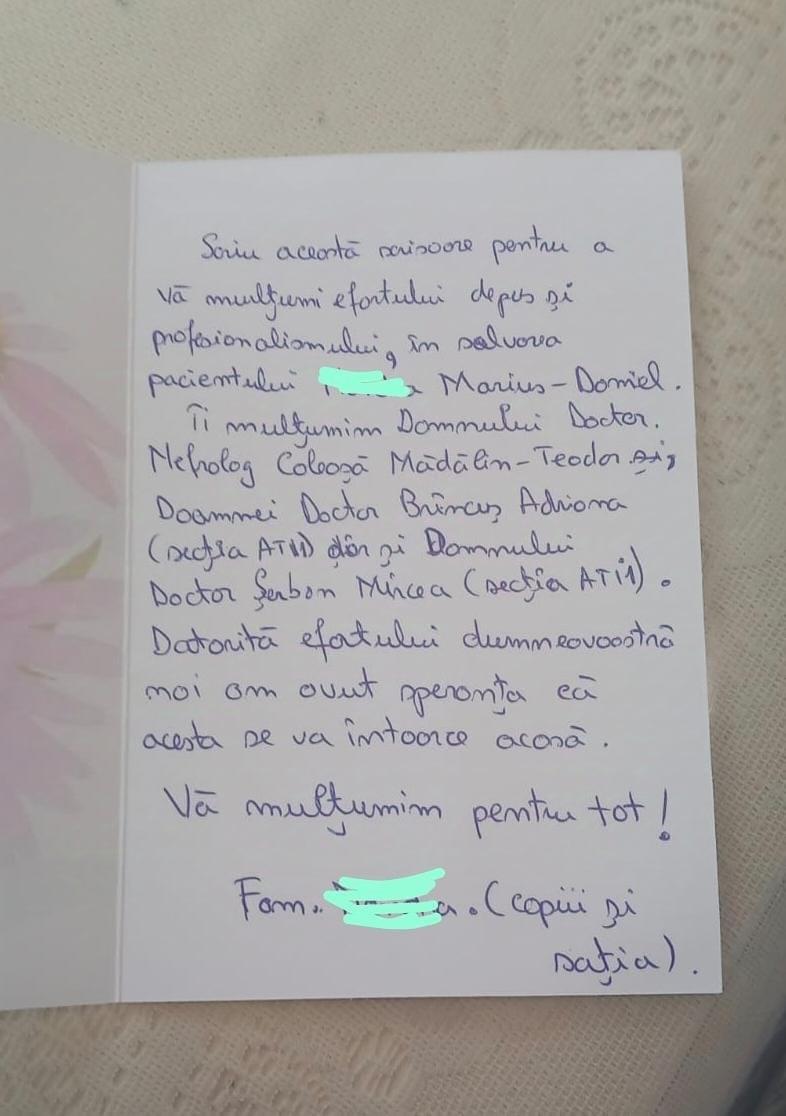 Scriu această scrisoare pentru a
vă mulțumi efortului depus și
profesionalismului, în salvarea
pacientului Marius-Daniel.
Îi mulțumim Domnului Doctor
Nefrolog Coloază Mădălin-Teodor și,
Doamnei Doctor Brîncuș Adriana
(secția ATI1) dar și Domnului
Doctor Șerban Mircea (secția ATI1).
Datorită efortului dumneavoastră
noi am avut speranța că
acesta se va întoarce acasă.
Vă mulțumim pentru tot!
Fam. (copiii și
soția).